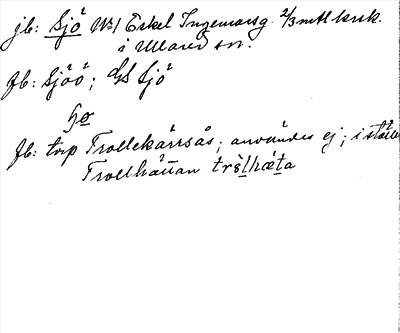 jb: Sjö Nr 1 Eskel Ingemarsg. 2/3 mtl krsk.
i Ullared sn.
fb: Sjöö; Gs Sjö
fb: torp Trollekärrsås; användes ej; i stället
Trollhättan